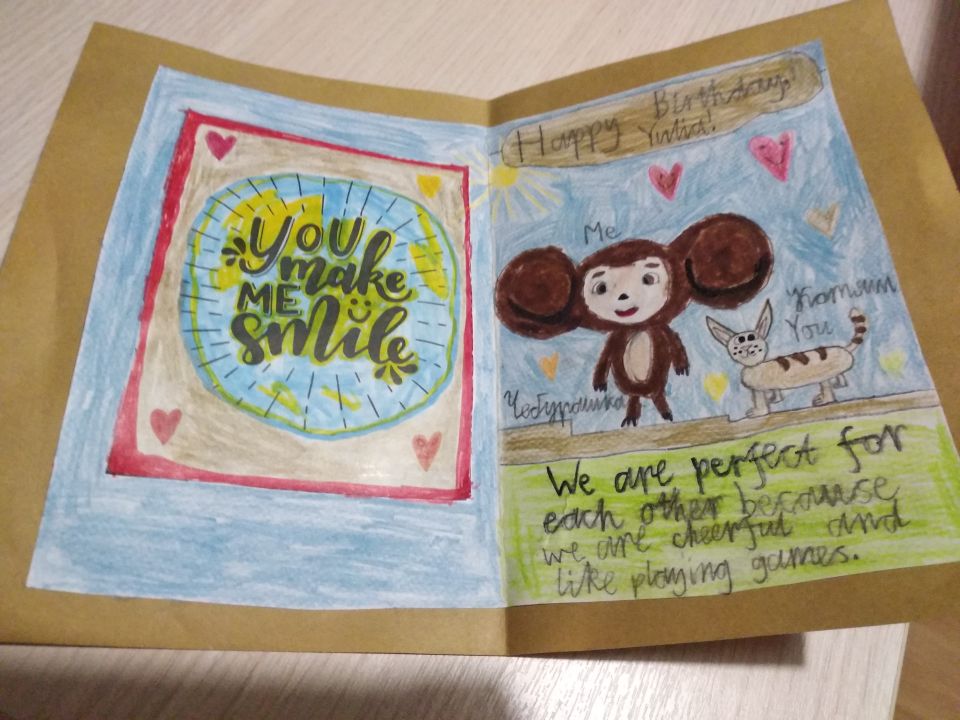 YOU
make
ME
smile
Happy Birthday,
Yulia!
Me
You
Чебурашка
We are perfect for
each other because
we are cheerful and
like playing games.